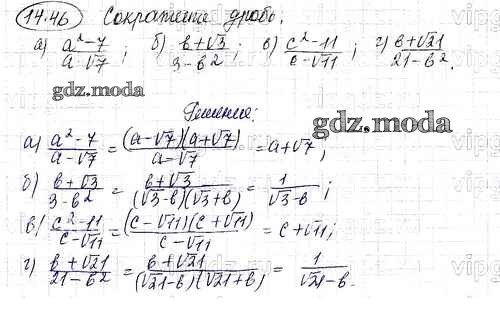 14.46 Сократите дробь:
а) a²-7/a-√7; б) b+√3/3-b²; в) c²-11/c-√11; г) b+√21/21-b².
gdz.moda
Решение:
gdz.moda
а) a²-7/a-√7 = (a-√7)(a+√7)/a-√7 = a+√7;
б) b+√3/3-b² = b+√3/(√3-b)(√3+b) = 1/√3-b;
в) c²-11/c-√11 = (c-√11)(c+√11)/c-√11 = c+√11;
г) b+√21/21-b² = b+√21/(√21-b)(√21+b) = 1/√21-b.